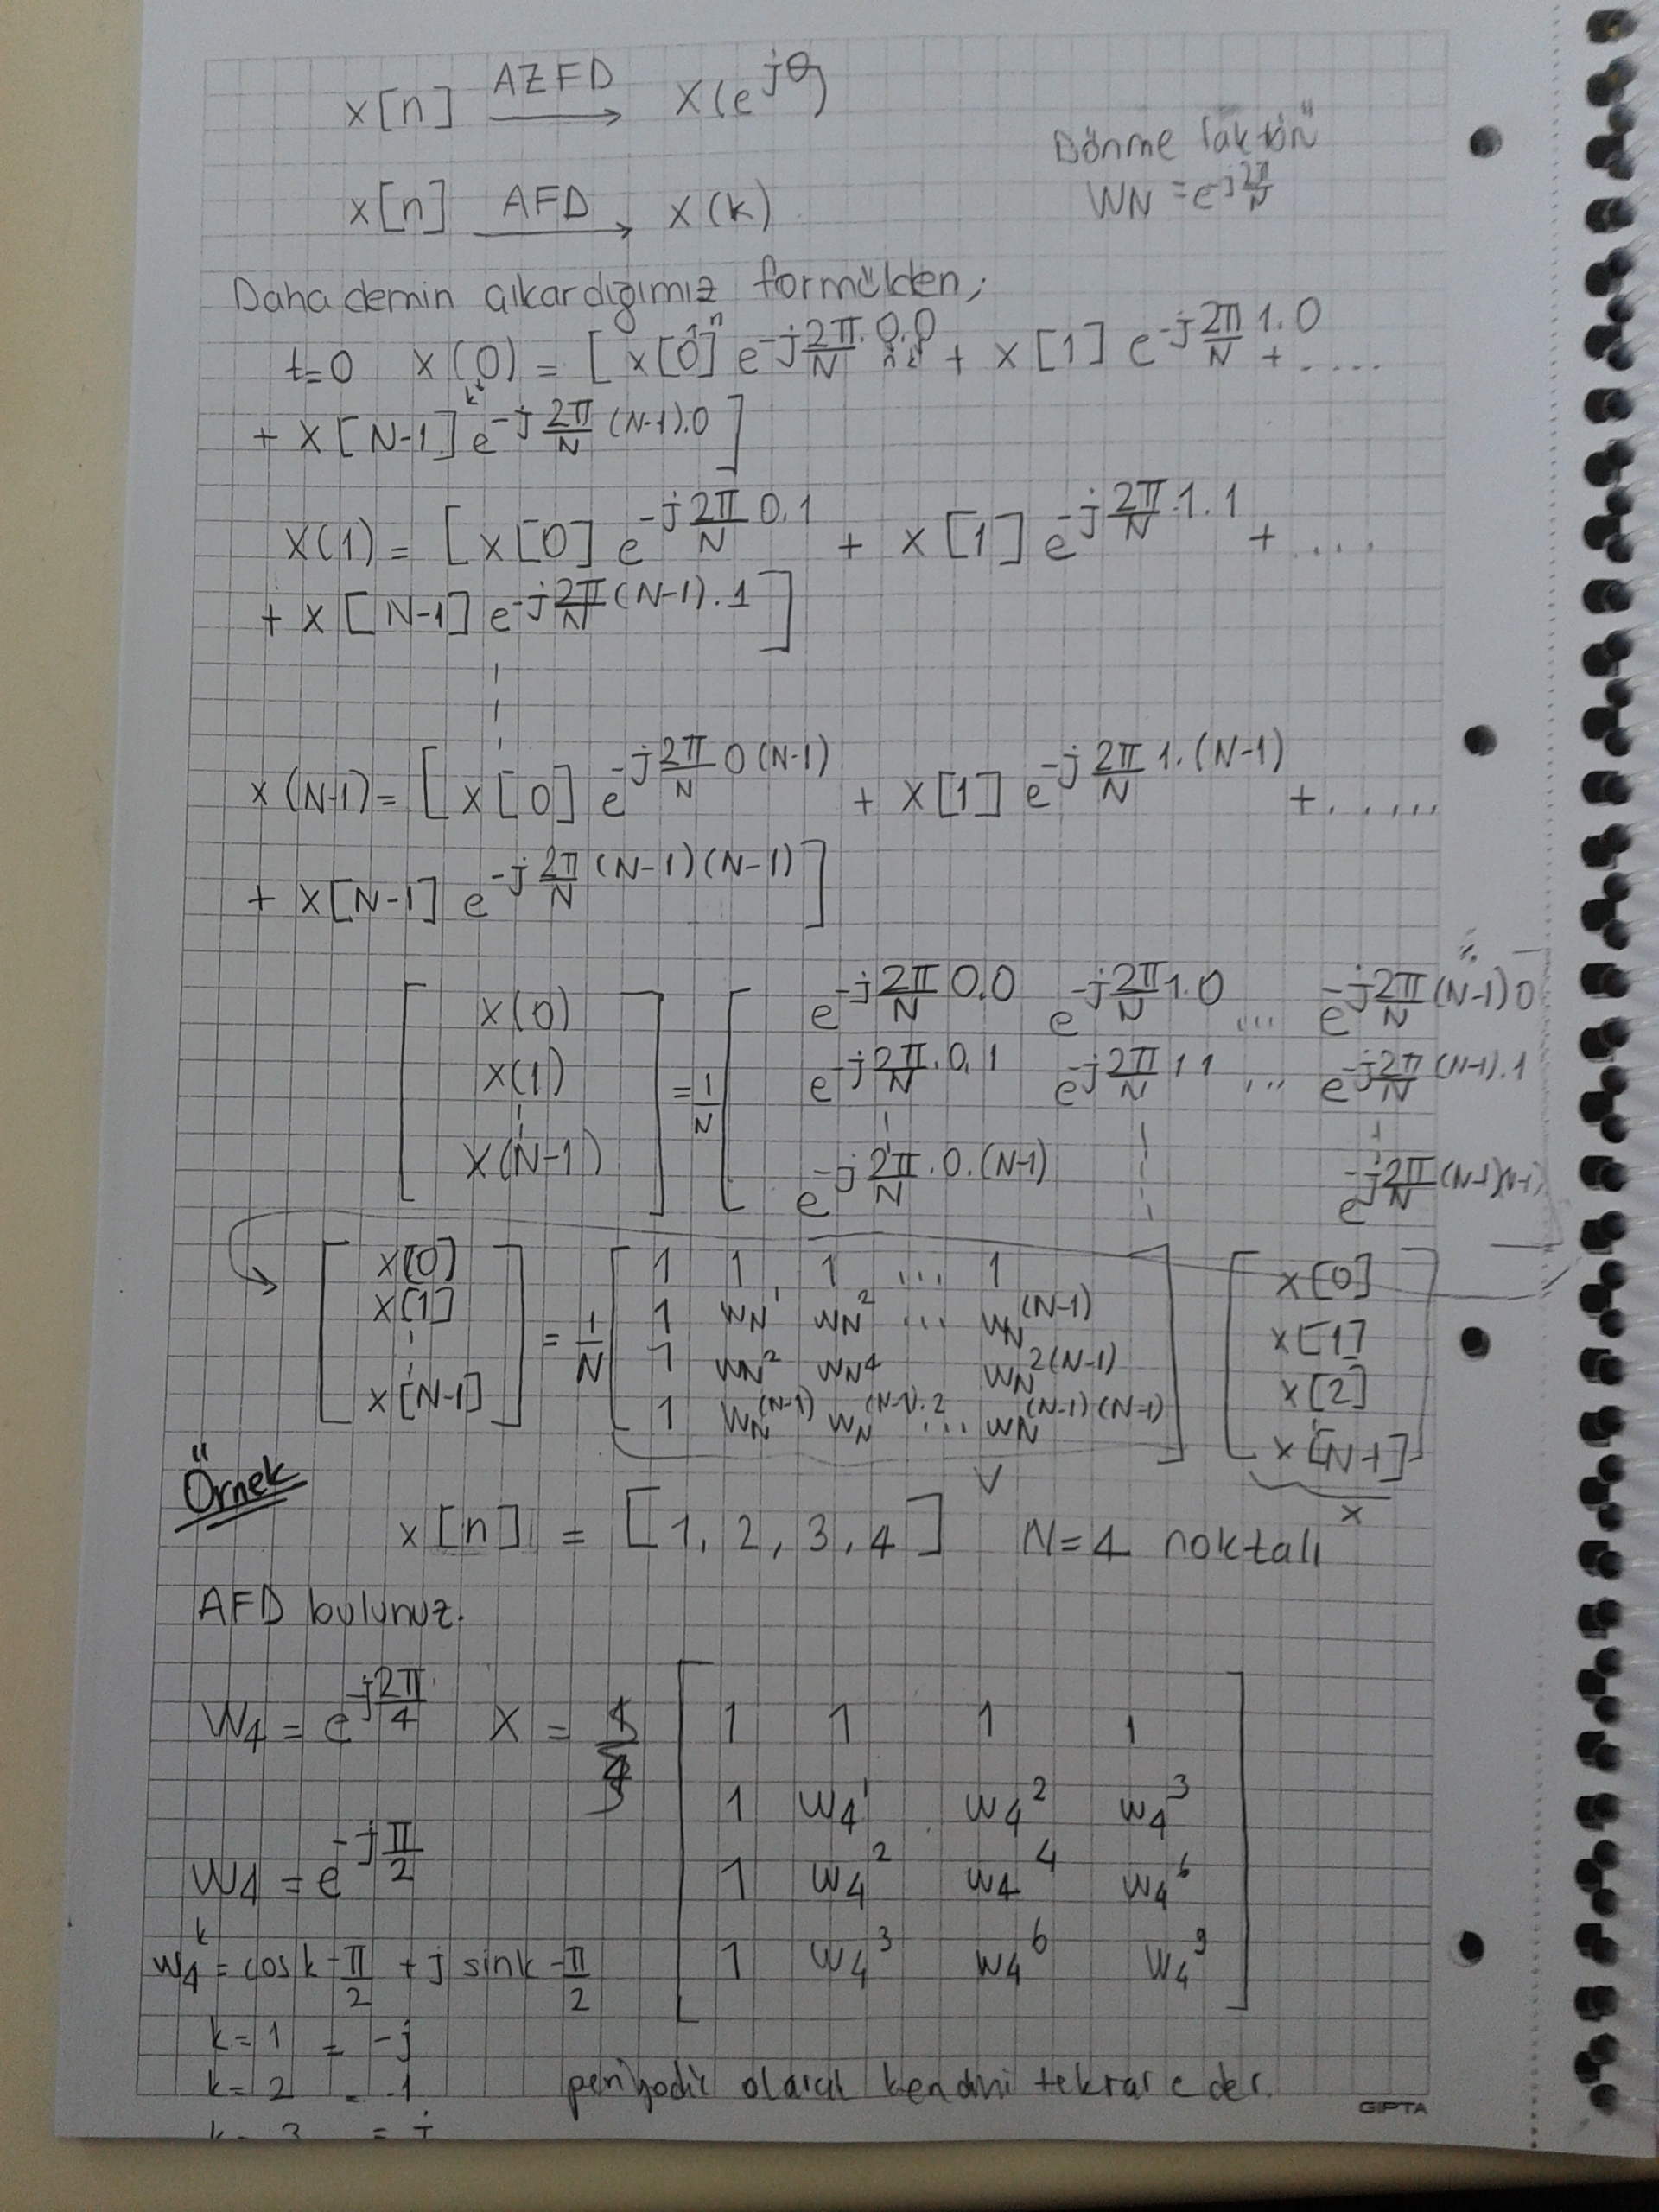 x[n] AZFD → X(e^jθ)
Dönme faktörü
WN = e^-j2π/N
x[n] AFD → X(k)
Daha demin çıkardığımız formülden,
t=0 X(0) = [x[0] e^-j2π/N.0.0 + x[1] e^-j2π/N 1.0 + ....
+ x[N-1] e^-j2π/N (N-1).0]
X(1) = [x[0] e^-j2π/N 0.1 + x[1] e^-j2π/N.1.1 + ....
+ x[N-1] e^-j2π/N (N-1).1]
x(N-1) = [x[0] e^-j2π/N 0(N-1) + x[1] e^-j2π/N 1.(N-1) + .....
+ x[N-1] e^-j2π/N (N-1)(N-1)]
X(0) e^-j2π/N 0.0 e^-j2π/N 1.0 ... e^-j2π/N (N-1)0
X(1) = 1/N e^-j2π/N.0.1 e^-j2π/N 1 1 ... e^-j2π/N (N-1).1
X(N-1) e^-j2π/N.0.(N-1) e^-j2π/N (N-1)(N-1)
x[0] 1 1 1 ... 1 x[0]
x[1] = 1/N 1 WN^1 WN^2 ... WN^(N-1) x[1]
1 WN^2 WN^4 WN^2(N-1) x[2]
x[N-1] 1 WN^(N-1) WN^(N-1).2 ... WN^(N-1)(N-1) x[N-1]
V x
Örnek
x[n] = [1, 2, 3, 4] N=4 noktalı
AFD bulunuz.
W4 = e^-j2π/4 X = 1 1 1 1
1 W4^1 W4^2 W4^3
W4 = e^-jπ/2 1 W4^2 W4^4 W4^6
W4^k = cos k -π/2 + j sin k -π/2 1 W4^3 W4^6 W4^9
k=1 = -j
k=2 = -1 periyodik olarak kendini tekrar eder.
k=3 = j
GIPTA